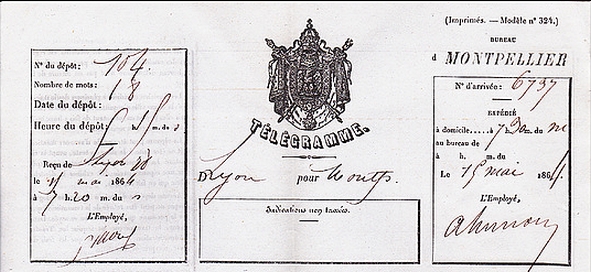 N° du dépôt: 104
Nombre de mots: 18
Date du dépôt:
Heure du dépôt: h m. du s
Reçu de
le 15 mai 1864
à 7 h. 20 m. du
L'Employé,
TÉLÉGRAMME.
D Lyon pour Montp.
Indications non taxées.
(Imprimés. — Modèle n° 324.)
BUREAU
d MONTPELLIER
N° d'arrivée: 6737
EXPÉDIÉ
à domicile.....à 7 h. 30 m. du
au bureau de
à h. m. du
Le 15 mai 1864.
L'Employé,